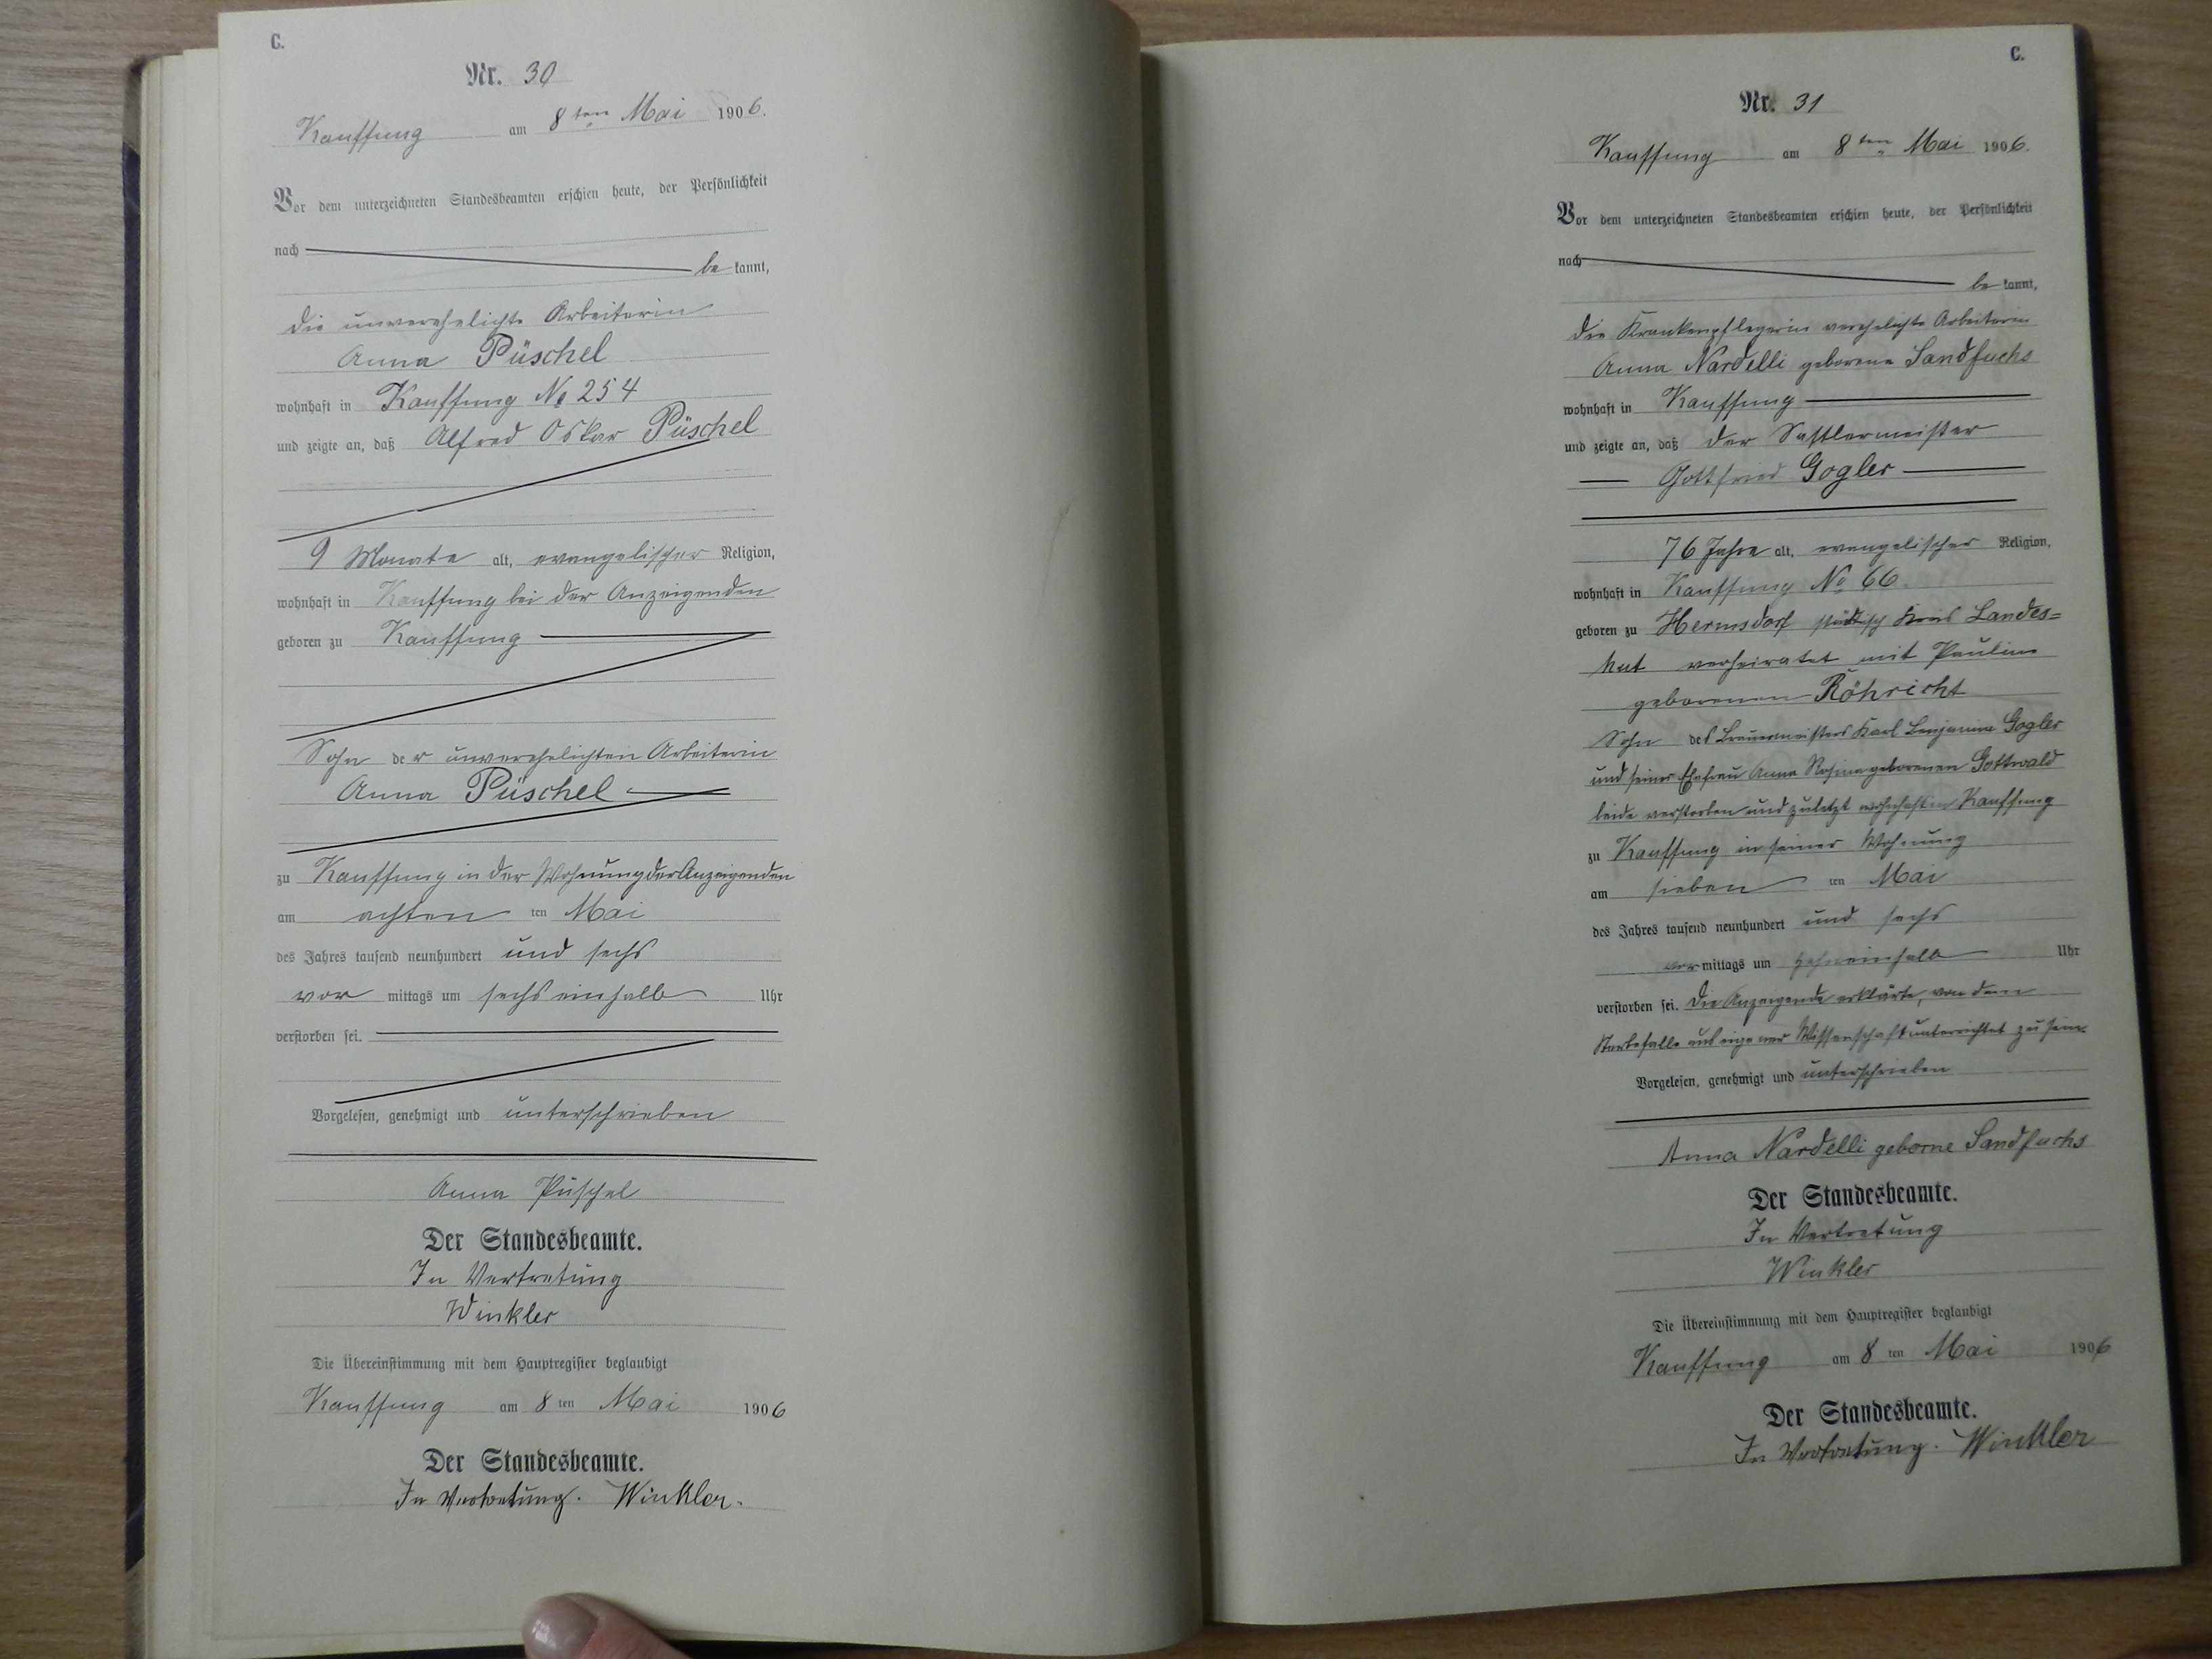 C.
Nr. 30
Kauffung am 8ten Mai 1906.
Vor dem unterzeichneten Standesbeamten erschien heute, der Persönlichkeit
nach
be kannt,
die unverehelichte Arbeiterin
Anna Püschel
wohnhaft in Kauffung No 254
und zeigte an, daß Alfred Oskar Püschel
9 Monate alt, evangelischer Religion,
wohnhaft in Kauffung bei der Anzeigenden
geboren zu Kauffung
Sohn der unverehelichten Arbeiterin
Anna Püschel
zu Kauffung in der Wohnung der Anzeigenden
am achten ten Mai
des Jahres tausend neunhundert und sechs
vor mittags um sechs einhalb Uhr
verstorben sei.
Vorgelesen, genehmigt und unterschrieben
Anna Püschel
Der Standesbeamte.
In Vertretung
Winkler
Die Übereinstimmung mit dem Hauptregister beglaubigt
Kauffung am 8 ten Mai 1906
Der Standesbeamte.
In Vertretung. Winkler.
C.
Nr. 31
Kauffung am 8ten Mai 1906.
Vor dem unterzeichneten Standesbeamten erschien heute, der Persönlichkeit
nach
be kannt,
die Krankenpflegerin verehelichte Arbeiterin
Anna Nardelli geborene Sandfuchs
wohnhaft in Kauffung
und zeigte an, daß der Sattlermeister
Gottfried Gogler
76 Jahre alt, evangelischer Religion,
wohnhaft in Kauffung No 66.
geboren zu Hermsdorf städtisch Kreis Landes=
hut verheiratet mit Pauline
geborenen Röhricht
Sohn des Brauermeisters Karl Benjamin Gogler
und seiner Ehefrau Anna Rosina geborenen Gottwald
beide verstorben und zuletzt wohnhaft in Kauffung
zu Kauffung in seiner Wohnung
am sieben ten Mai
des Jahres tausend neunhundert und sechs
vor mittags um zehn einhalb Uhr
verstorben sei. Die Anzeigende erklärte, von dem
Sterbefalle aus eigener Wissenschaft unterrichtet zu sein.
Vorgelesen, genehmigt und unterschrieben
Anna Nardelli geborne Sandfuchs
Der Standesbeamte.
In Vertretung
Winkler
Die Übereinstimmung mit dem Hauptregister beglaubigt
Kauffung am 8 ten Mai 1906
Der Standesbeamte.
In Vertretung. Winkler